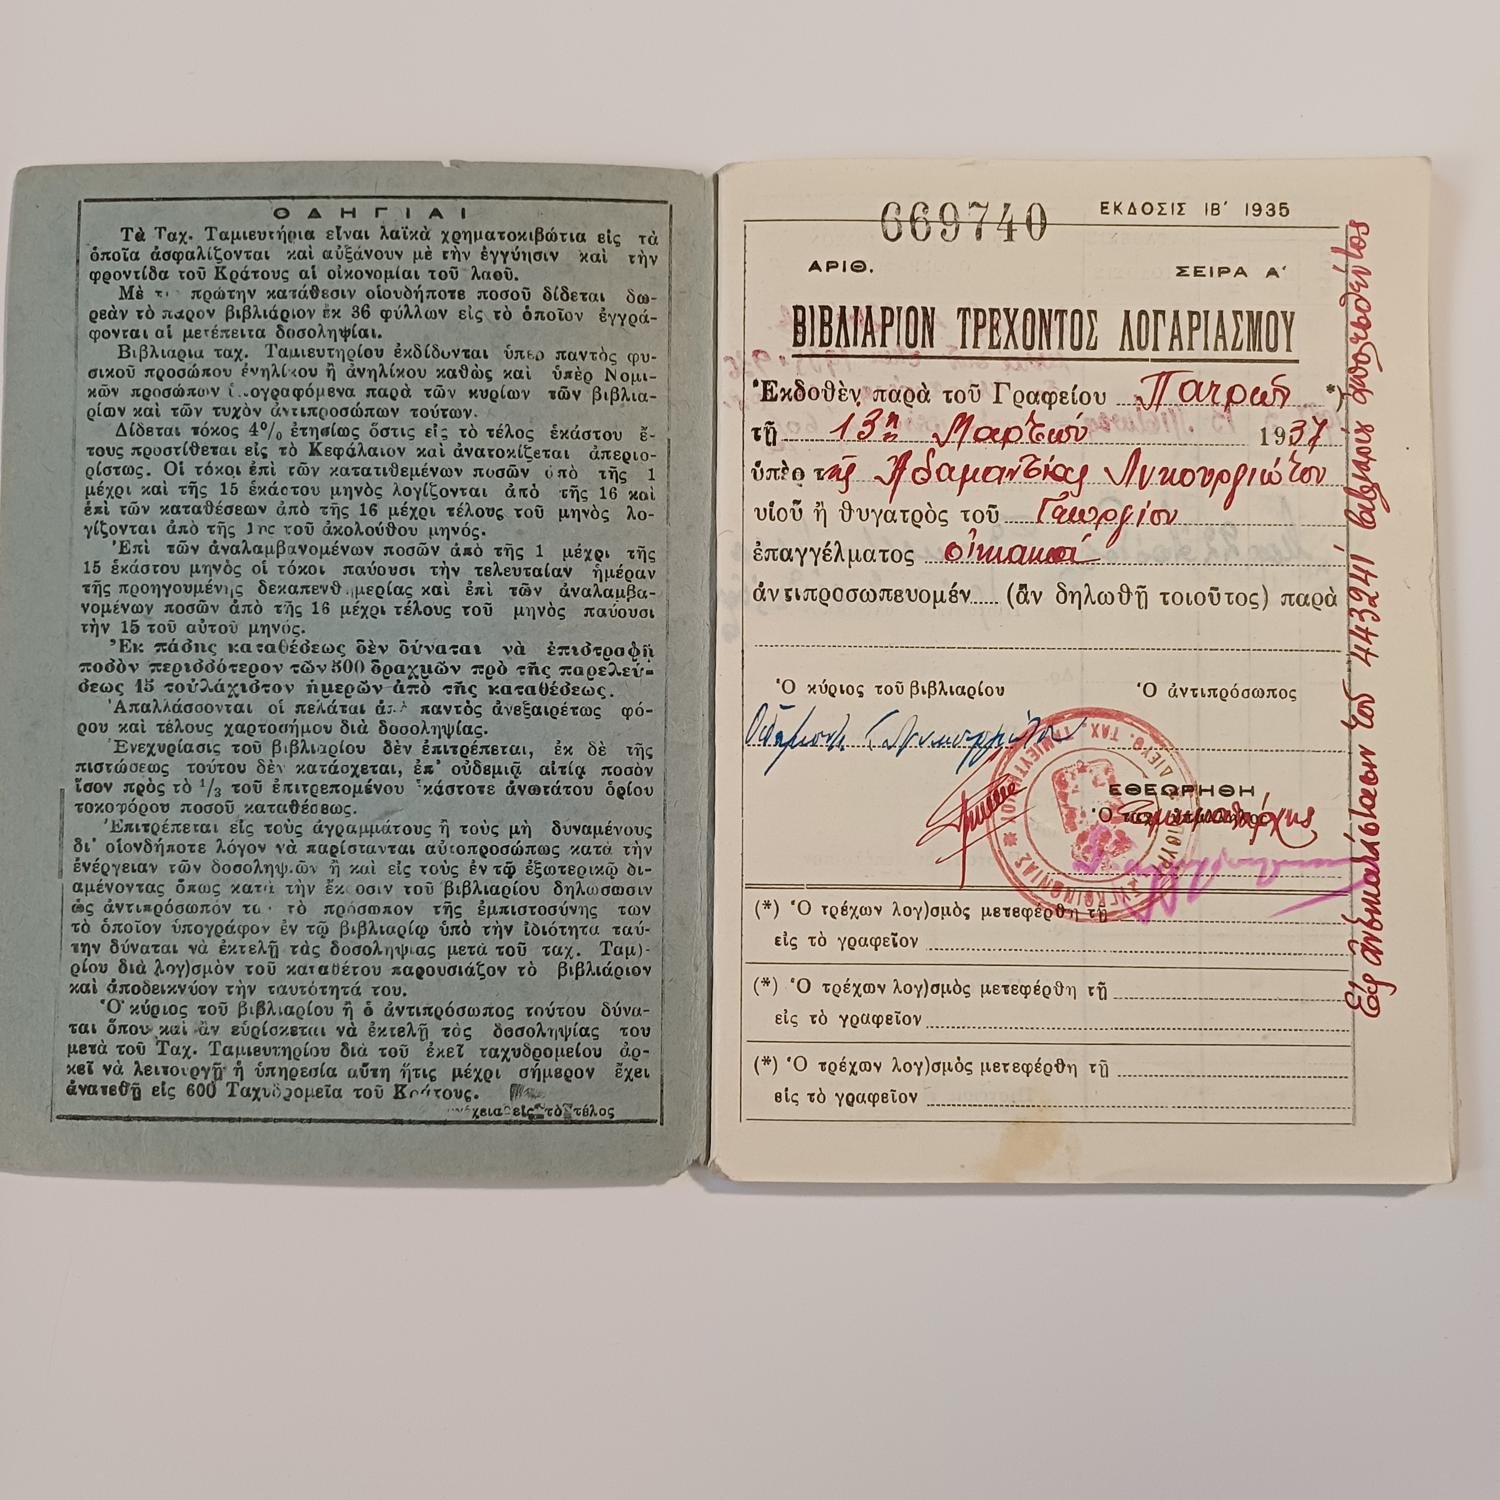 ΟΔΗΓΙΑΙ
Τὰ Ταχ. Ταμιευτήρια εἶναι λαϊκὰ χρηματοκιβώτια εἰς τὰ
ὁποῖα ἀσφαλίζονται καὶ αὐξάνουν μὲ τὴν ἐγγύησιν καὶ τὴν
φροντίδα τοῦ Κράτους αἱ οἰκονομίαι τοῦ λαοῦ.
Μὲ πρώτην κατάθεσιν οἱουδήποτε ποσοῦ δίδεται δω-
ρεὰν τὸ παρὸν βιβλιάριον ἐκ 36 φύλλων εἰς τὸ ὁποῖον ἐγγρά-
φονται αἱ μετέπειτα δοσοληψίαι.
Βιβλιαρια ταχ. Ταμιευτηρίου ἐκδίδονται ὑπὲρ παντὸς φυ-
σικοῦ προσώπου ἐνηλίκου ἢ ἀνηλίκου καθὼς καὶ ὑπὲρ Νομι-
κῶν προσώπων ὑπογραφόμενα παρὰ τῶν κυρίων τῶν βιβλια-
ρίων καὶ τῶν τυχὸν ἀντιπροσώπων τούτων.
Δίδεται τόκος 4% ἐτησίως ὅστις εἰς τὸ τέλος ἑκάστου ἔ-
τους προστίθεται εἰς τὸ Κεφάλαιον καὶ ἀνατοκίζεται ἀπεριο-
ρίστως. Οἱ τόκοι ἐπὶ τῶν κατατιθεμένων ποσῶν ἀπὸ τῆς 1
μέχρι καὶ τῆς 15 ἑκάστου μηνὸς λογίζονται ἀπὸ τῆς 16 καὶ
ἐπὶ τῶν καταθέσεων ἀπὸ τῆς 16 μέχρι τέλους τοῦ μηνὸς λο-
γίζονται ἀπὸ τῆς 1ης τοῦ ἀκολούθου μηνός.
Ἐπὶ τῶν ἀναλαμβανομένων ποσῶν ἀπὸ τῆς 1 μέχρι τῆς
15 ἑκάστου μηνὸς οἱ τόκοι παύουσι τὴν τελευταίαν ἡμέραν
τῆς προηγουμένης δεκαπενθημερίας καὶ ἐπὶ τῶν ἀναλαμβα-
νομένων ποσῶν ἀπὸ τῆς 16 μέχρι τέλους τοῦ μηνὸς παύουσι
τὴν 15 τοῦ αὐτοῦ μηνός.
Ἐκ πάσης καταθέσεως δὲν δύναται νὰ ἐπιστραφῇ
ποσὸν περισσότερον τῶν 500 δραχμῶν πρὸ τῆς παρελεύ-
σεως 15 τοὐλάχιστον ἡμερῶν ἀπὸ τῆς καταθέσεως.
Ἀπαλλάσσονται οἱ πελάται ἀπὸ παντὸς ἀνεξαιρέτως φό-
ρου καὶ τέλους χαρτοσήμου διὰ δοσοληψίας.
Ἐνεχυρίασις τοῦ βιβλιαρίου δὲν ἐπιτρέπεται, ἐκ δὲ τῆς
πιστώσεως τούτου δὲν κατάσχεται, ἐπ' οὐδεμιᾷ αἰτίᾳ ποσὸν
ἴσον πρὸς τὸ 1/3 τοῦ ἐπιτρεπομένου ἑκάστοτε ἀνωτάτου ὁρίου
τοκοφόρου ποσοῦ καταθέσεως.
Ἐπιτρέπεται εἰς τοὺς ἀγραμμάτους ἢ τοὺς μὴ δυναμένους
δι' οἱονδήποτε λόγον νὰ παρίστανται αὐτοπροσώπως κατὰ τὴν
ἐνέργειαν τῶν δοσοληψιῶν ἢ καὶ εἰς τοὺς ἐν τῷ ἐξωτερικῷ δι-
αμένοντας ὅπως κατὰ τὴν ἔκδοσιν τοῦ βιβλιαρίου δηλώσωσιν
ὡς ἀντιπρόσωπόν των τὸ πρόσωπον τῆς ἐμπιστοσύνης των
τὸ ὁποῖον ὑπογράφον ἐν τῷ βιβλιαρίῳ ὑπὸ τὴν ἰδιότητα ταύ-
την δύναται νὰ ἐκτελῇ τὰς δοσοληψίας μετὰ τοῦ ταχ. Ταμ)-
ρίου διὰ λογ)σμὸν τοῦ καταθέτου παρουσιάζον τὸ βιβλιάριον
καὶ ἀποδεικνύον τὴν ταυτότητά του.
Ὁ κύριος τοῦ βιβλιαρίου ἢ ὁ ἀντιπρόσωπος τούτου δύνα-
ται ὅπου καὶ ἂν εὑρίσκεται νὰ ἐκτελῇ τὰς δοσοληψίας του
μετὰ τοῦ Ταχ. Ταμιευτηρίου διὰ τοῦ ἐκεῖ ταχυδρομείου ἀρ-
κεῖ νὰ λειτουργῇ ἡ ὑπηρεσία αὕτη ἥτις μέχρι σήμερον ἔχει
ἀνατεθῇ εἰς 600 Ταχυδρομεῖα τοῦ Κράτους.
εἰς τὸ τέλος
669740
ΕΚΔΟΣΙΣ ΙΒ' 1935
ΑΡΙΘ.
ΣΕΙΡΑ Α'
ΒΙΒΛΙΑΡΙΟΝ ΤΡΕΧΟΝΤΟΣ ΛΟΓΑΡΙΑΣΜΟΥ
Ἐκδοθὲν παρὰ τοῦ Γραφείου Πατρῶν *)
τῇ 13ῃ Μαρτίου 1937
ὑπὲρ τῆς Ἀδαμαντίας Λυκουργιώτου
υἱοῦ ἢ θυγατρὸς τοῦ Γεωργίου
ἐπαγγέλματος οἰκιακά
ἀντιπροσωπευομέν..... (ἂν δηλωθῇ τοιοῦτος) παρὰ
Ὁ κύριος τοῦ βιβλιαρίου
Ὁ ἀντιπρόσωπος
ΕΘΕΩΡΗΘΗ
(*) Ὁ τρέχων λογ)σμὸς μετεφέρθη τῇ
εἰς τὸ γραφεῖον
(*) Ὁ τρέχων λογ)σμὸς μετεφέρθη τῇ
εἰς τὸ γραφεῖον
(*) Ὁ τρέχων λογ)σμὸς μετεφέρθη τῇ
εἰς τὸ γραφεῖον
Εἰς ἀντικατάστασιν τοῦ 443241 βιβλιαρίου ἀπολεσθέντος